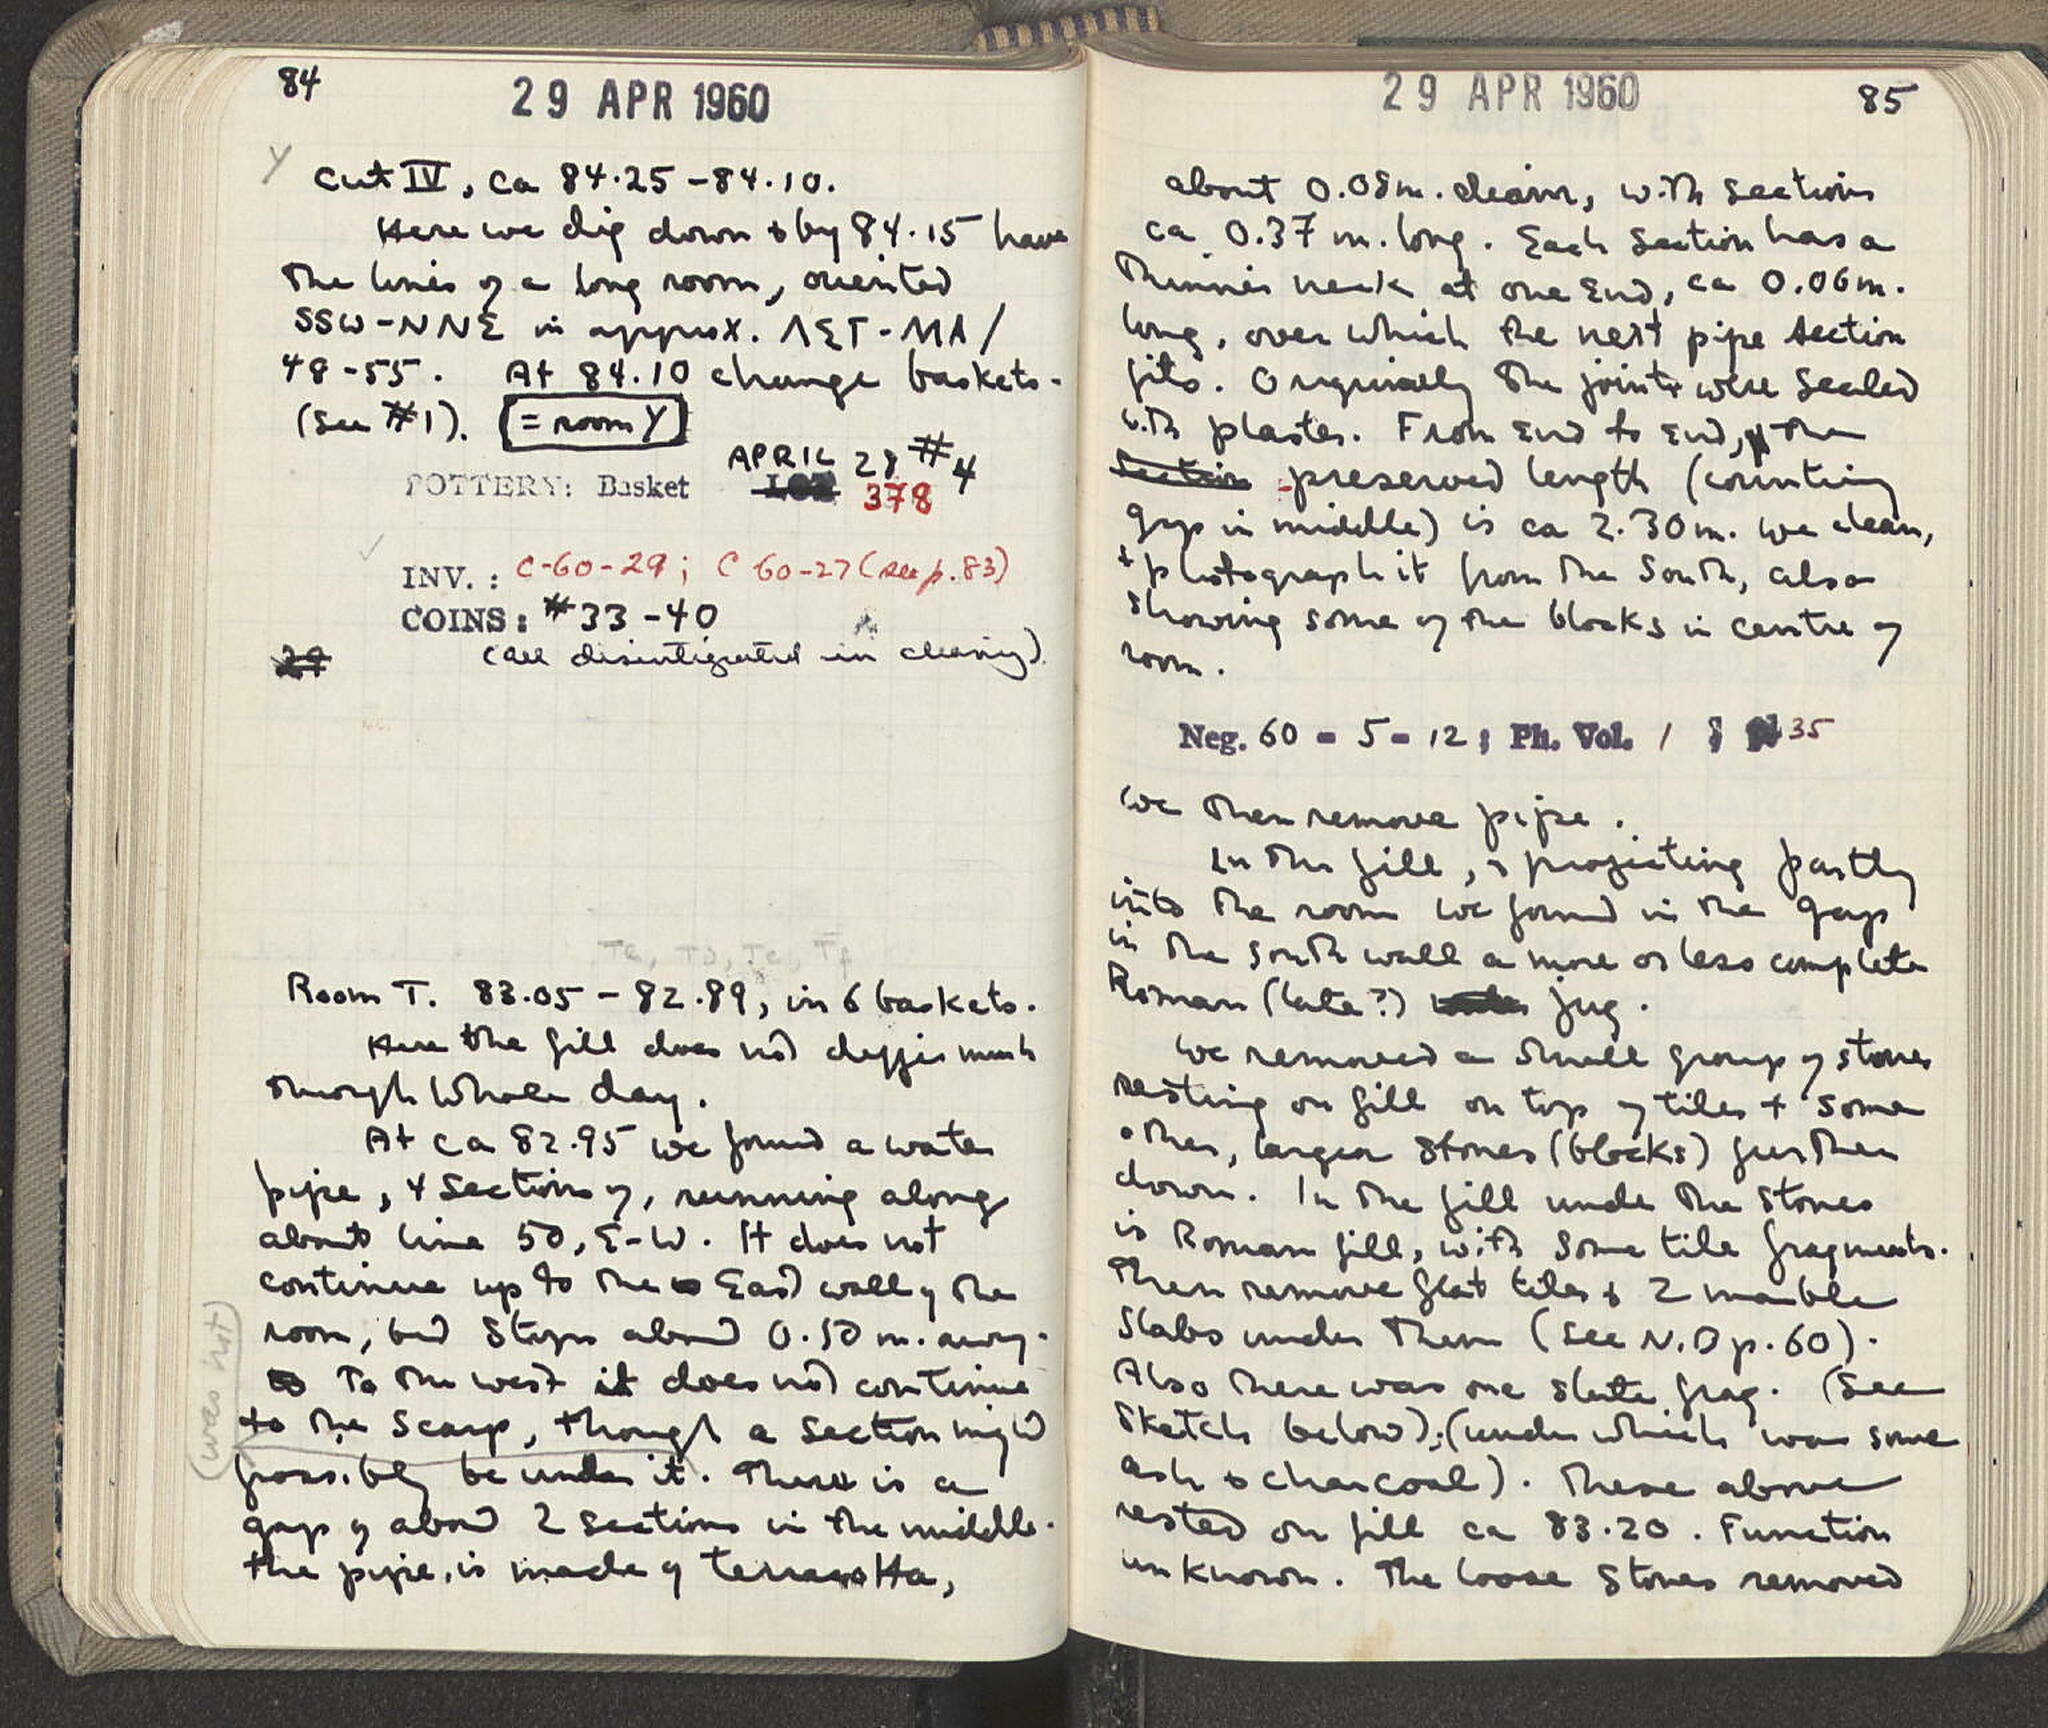 84
29 APR 1960
Y
Cut IV, ca 84.25 - 84.10.
Here we dig down & by 84.15 have
the lines of a long room, oriented
SSW-NNE in approx. ΛΣΤ-ΜΑ/
48-55. At 84.10 change baskets.
(See #1). = room Y
APRIL 28 #4
POTTERY: Basket LOT 378
INV.: C-60-29; C 60-27 (see p. 83)
COINS: #33-40
29 (all disintegrated in cleaning)
Te, Tb, Tc, Tf
Room T. 83.05 - 82.89, in 6 baskets.
Here the fill does not differ much
through whole day.
At ca 82.95 we found a water
pipe, 4 sections of, running along
about line 50, E-W. It does not
continue up to the East wall of the
room, but stops about 0.50 m. away.
To the west it does not continue
to the scarp, though a section might
(was not)
possibly be under it. There is a
gap of about 2 sections in the middle.
the pipe is made of terracotta,
29 APR 1960
85
about 0.08m. diam, with sections
ca 0.37 m. long. Each section has a
thinner neck at one end, ca 0.06m.
long, over which the next pipe section
fits. Originally the joints were sealed
with plaster. From end to end, the
section preserved length (counting
gap in middle) is ca 2.30m. we clean,
& photograph it from the South, also
showing some of the blocks in centre of
room.
Neg. 60 - 5 - 12; Ph. Vol. 1 ; 35
We then remove pipe.
In the fill, & projecting partly
into the room we found in the gap
in the south wall a more or less complete
Roman (late?) jug.
We removed a small group of stones
resting on fill on top of tiles + some
other, larger stones (blocks) further
down. In the fill under the stones
is Roman fill, with some tile fragments.
Then remove flat tiles & 2 marble
slabs under them (see N.D p. 60).
Also there was one slate frag. (See
sketch below); (under which was some
ash & charcoal). These above
rested on fill ca 83.20. Function
unknown. The loose stones removed